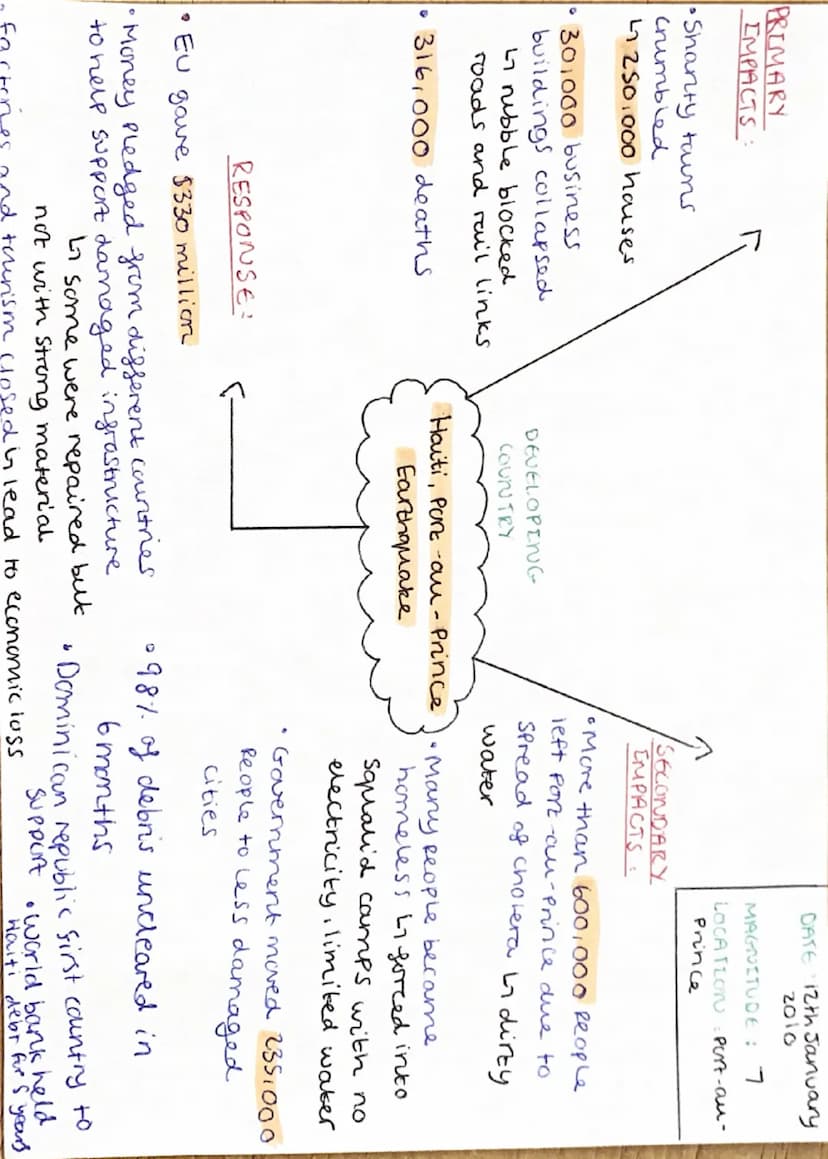 PRIMARY
IMPACTS:
• Shanty towns
crumbled
↳ 250,000 houses
• 30,000 business
buildings collapsed
↳ rubble blocked
roads and rail links
• 316,000 deaths
DATE: 12th January
2010
MAGNITUDE: 7
LOCATION: Port-au-
Prince
SECONDARY
IMPACTS:
• More than 600,000 people
left Port-au-Prince due to
spread of cholera ↳ dirty
water
• Many people became
homeless ↳ forced into
squalid camps with no
electricity, limited water
DEVELOPING
COUNTRY
Haiti, Port-au-Prince
Earthquake
RESPONSE:
• EU gave $330 million
• Money pledged from different countries
to help support damaged infrastructure
↳ some were repaired but
not with strong material
• Factories and tourism closed ↳ lead to economic loss
• Government moved 235,000
people to less damaged
cities
• 98% of debris uncleared in
6 months
• Dominican republic first country to
support
• World bank held
Haiti debt for 5 years